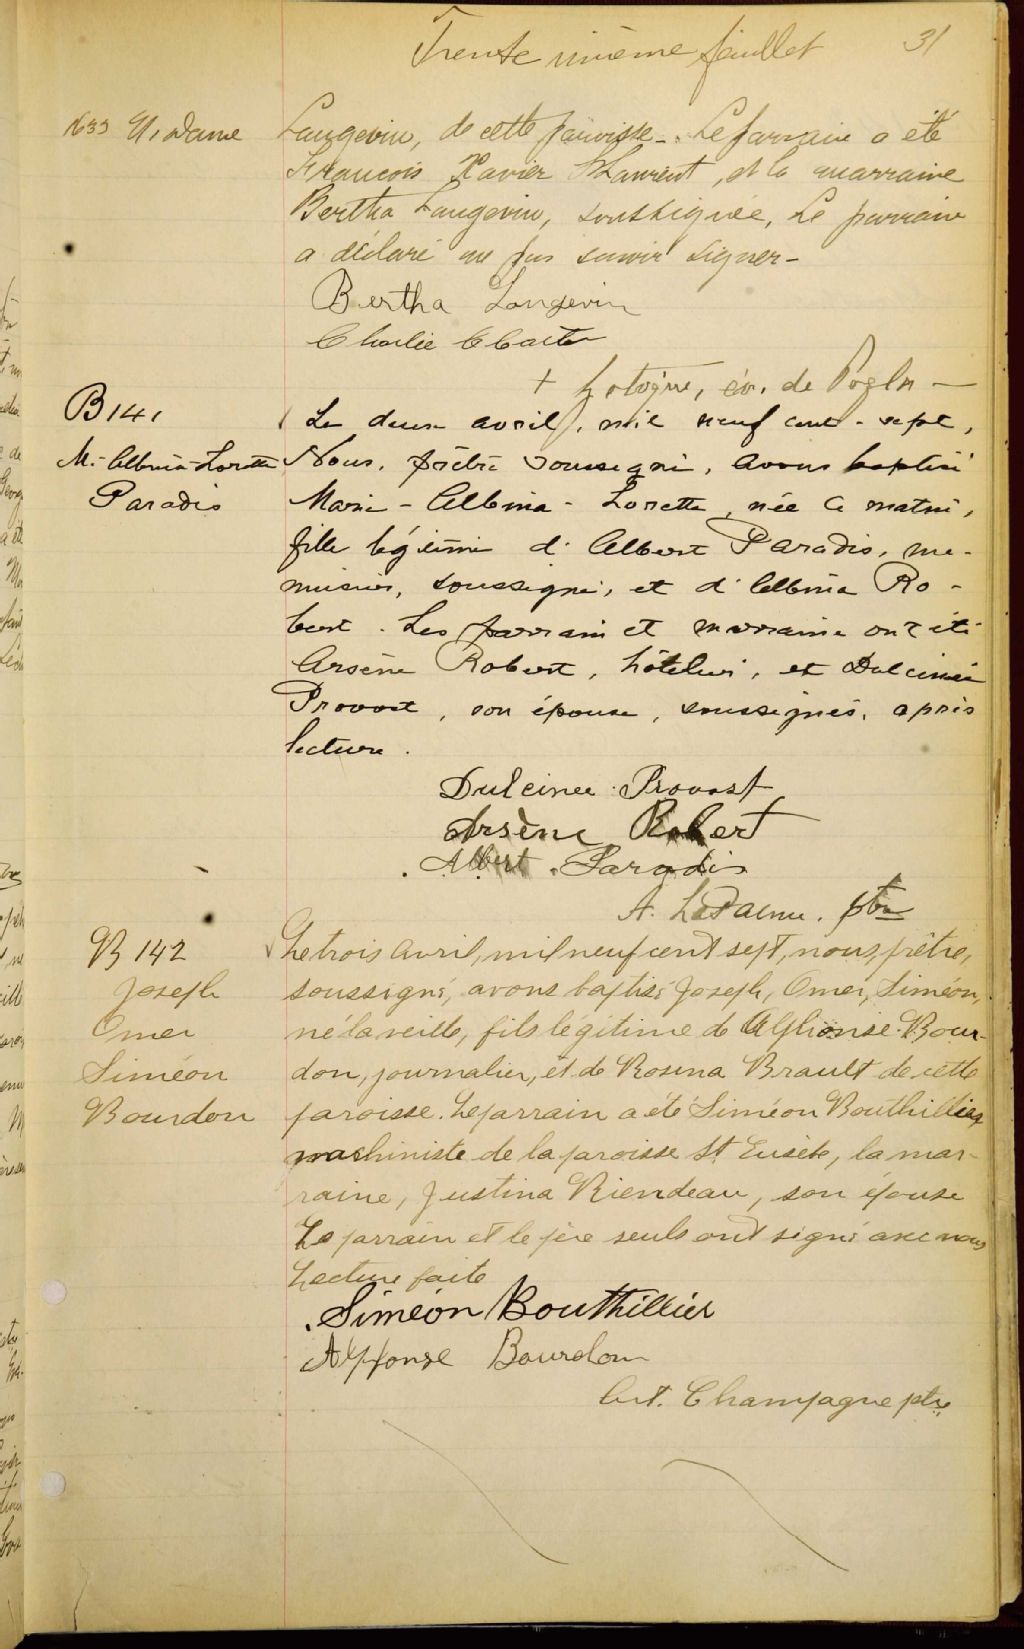 Trente unième feuillet 31
N. Dame Langevin, de cette paroisse. Le parrain a été
Francois Xavier St Laurent, et la marraine
Bertha Langevin, soussignée, Le parrain
a déclaré ne pas savoir signer-
Bertha Langevin
Charlie
+ ev. de
B 141
M.-Albina-Lorette
Paradis
Le deux avril, mil neuf cent-sept,
Nous, prêtre soussigné, avons baptisé
Marie-Albina-Lorette, née ce matin,
fille légitime d'Albert Paradis, me-
nuisier, soussigné, et d'Albina Ro-
bert. Les parrain et marraine ont été
Arsène Robert, hôtelier, et Dulcinée
Provost, son épouse, soussignés, après
lecture.
Dulcinee Provost
Arsène Robert
Albert Paradis
A. ptre
B 142
Joseph
Omer
Siméon
Bourdon
Le trois avril, mil neuf cent sept, nous, prêtre,
soussigné, avons baptisé Joseph, Omer, Siméon,
né la veille, fils légitime de Alphonse Bour-
don, journalier, et de Rosina Brault de cette
paroisse. Le parrain a été Siméon Bouthillier
machiniste de la paroisse St Eusèbe, la mar-
raine, Justina Riendeau, son épouse
Le parrain et le père seuls ont signé avec nous
Lecture faite
Siméon Bouthillier
Alphonse Bourdon
Champagne ptre